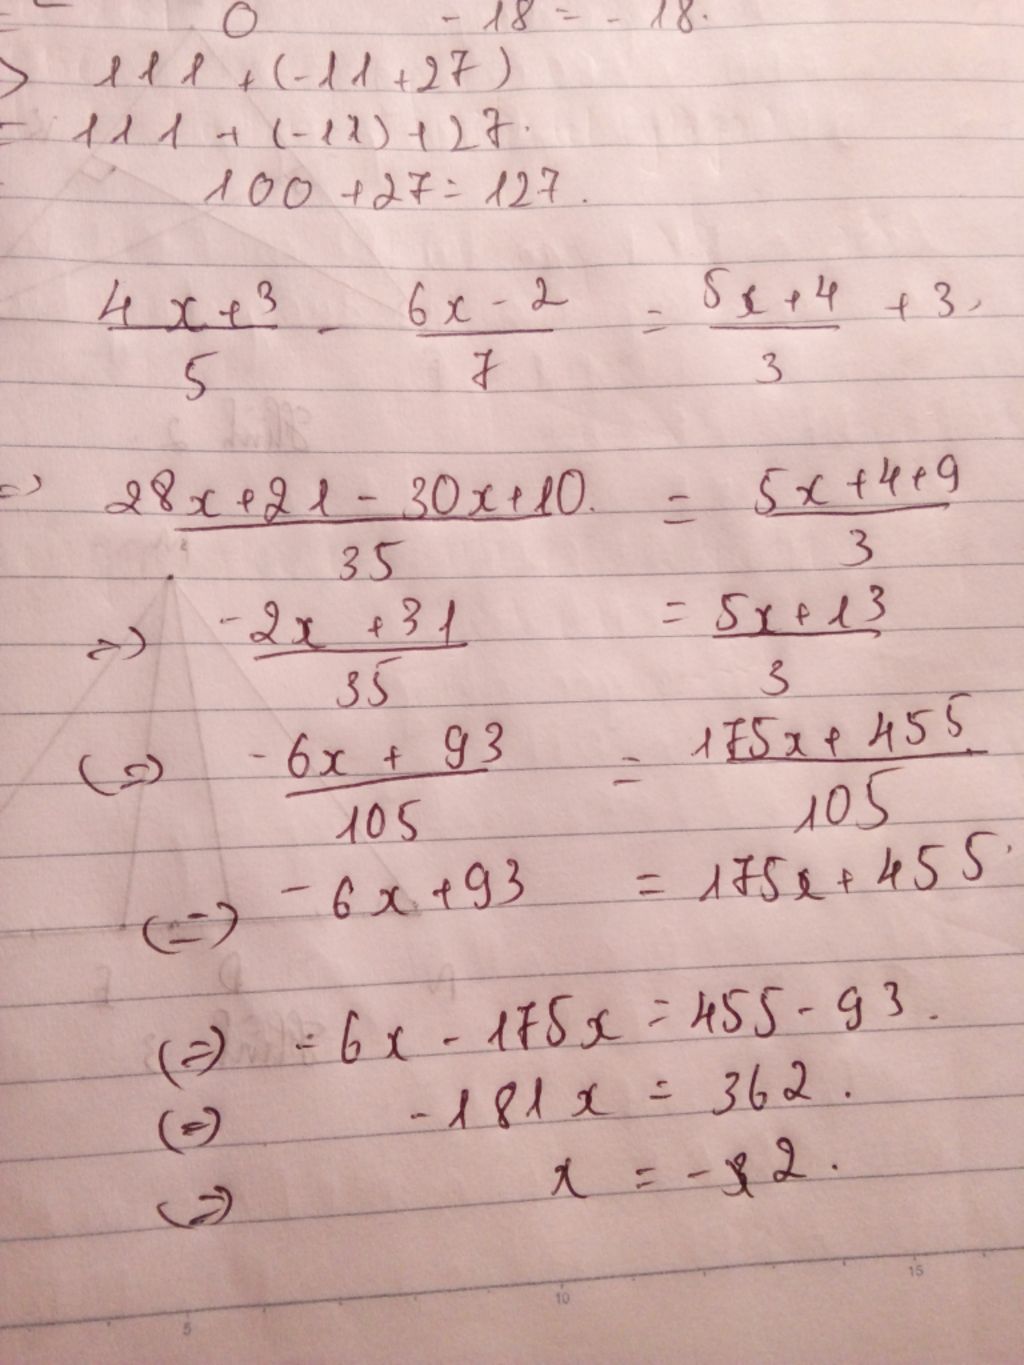 0 -18 = -18.
> 111 + (-11 + 27)
= 111 + (-11) + 27.
100 + 27 = 127.
4x+3 / 5 - 6x-2 / 7 = 5x+4 / 3 + 3.
=> 28x+21 - 30x+10. / 35 = 5x+4+9 / 3
=> -2x +31 / 35 = 5x+13 / 3
(=) -6x + 93 / 105 = 175x + 455 / 105
(=) -6x+93 = 175x + 455
(=) -6x - 175x = 455 - 93.
(=) -181x = 362.
(=) x = -2.
5 10 15